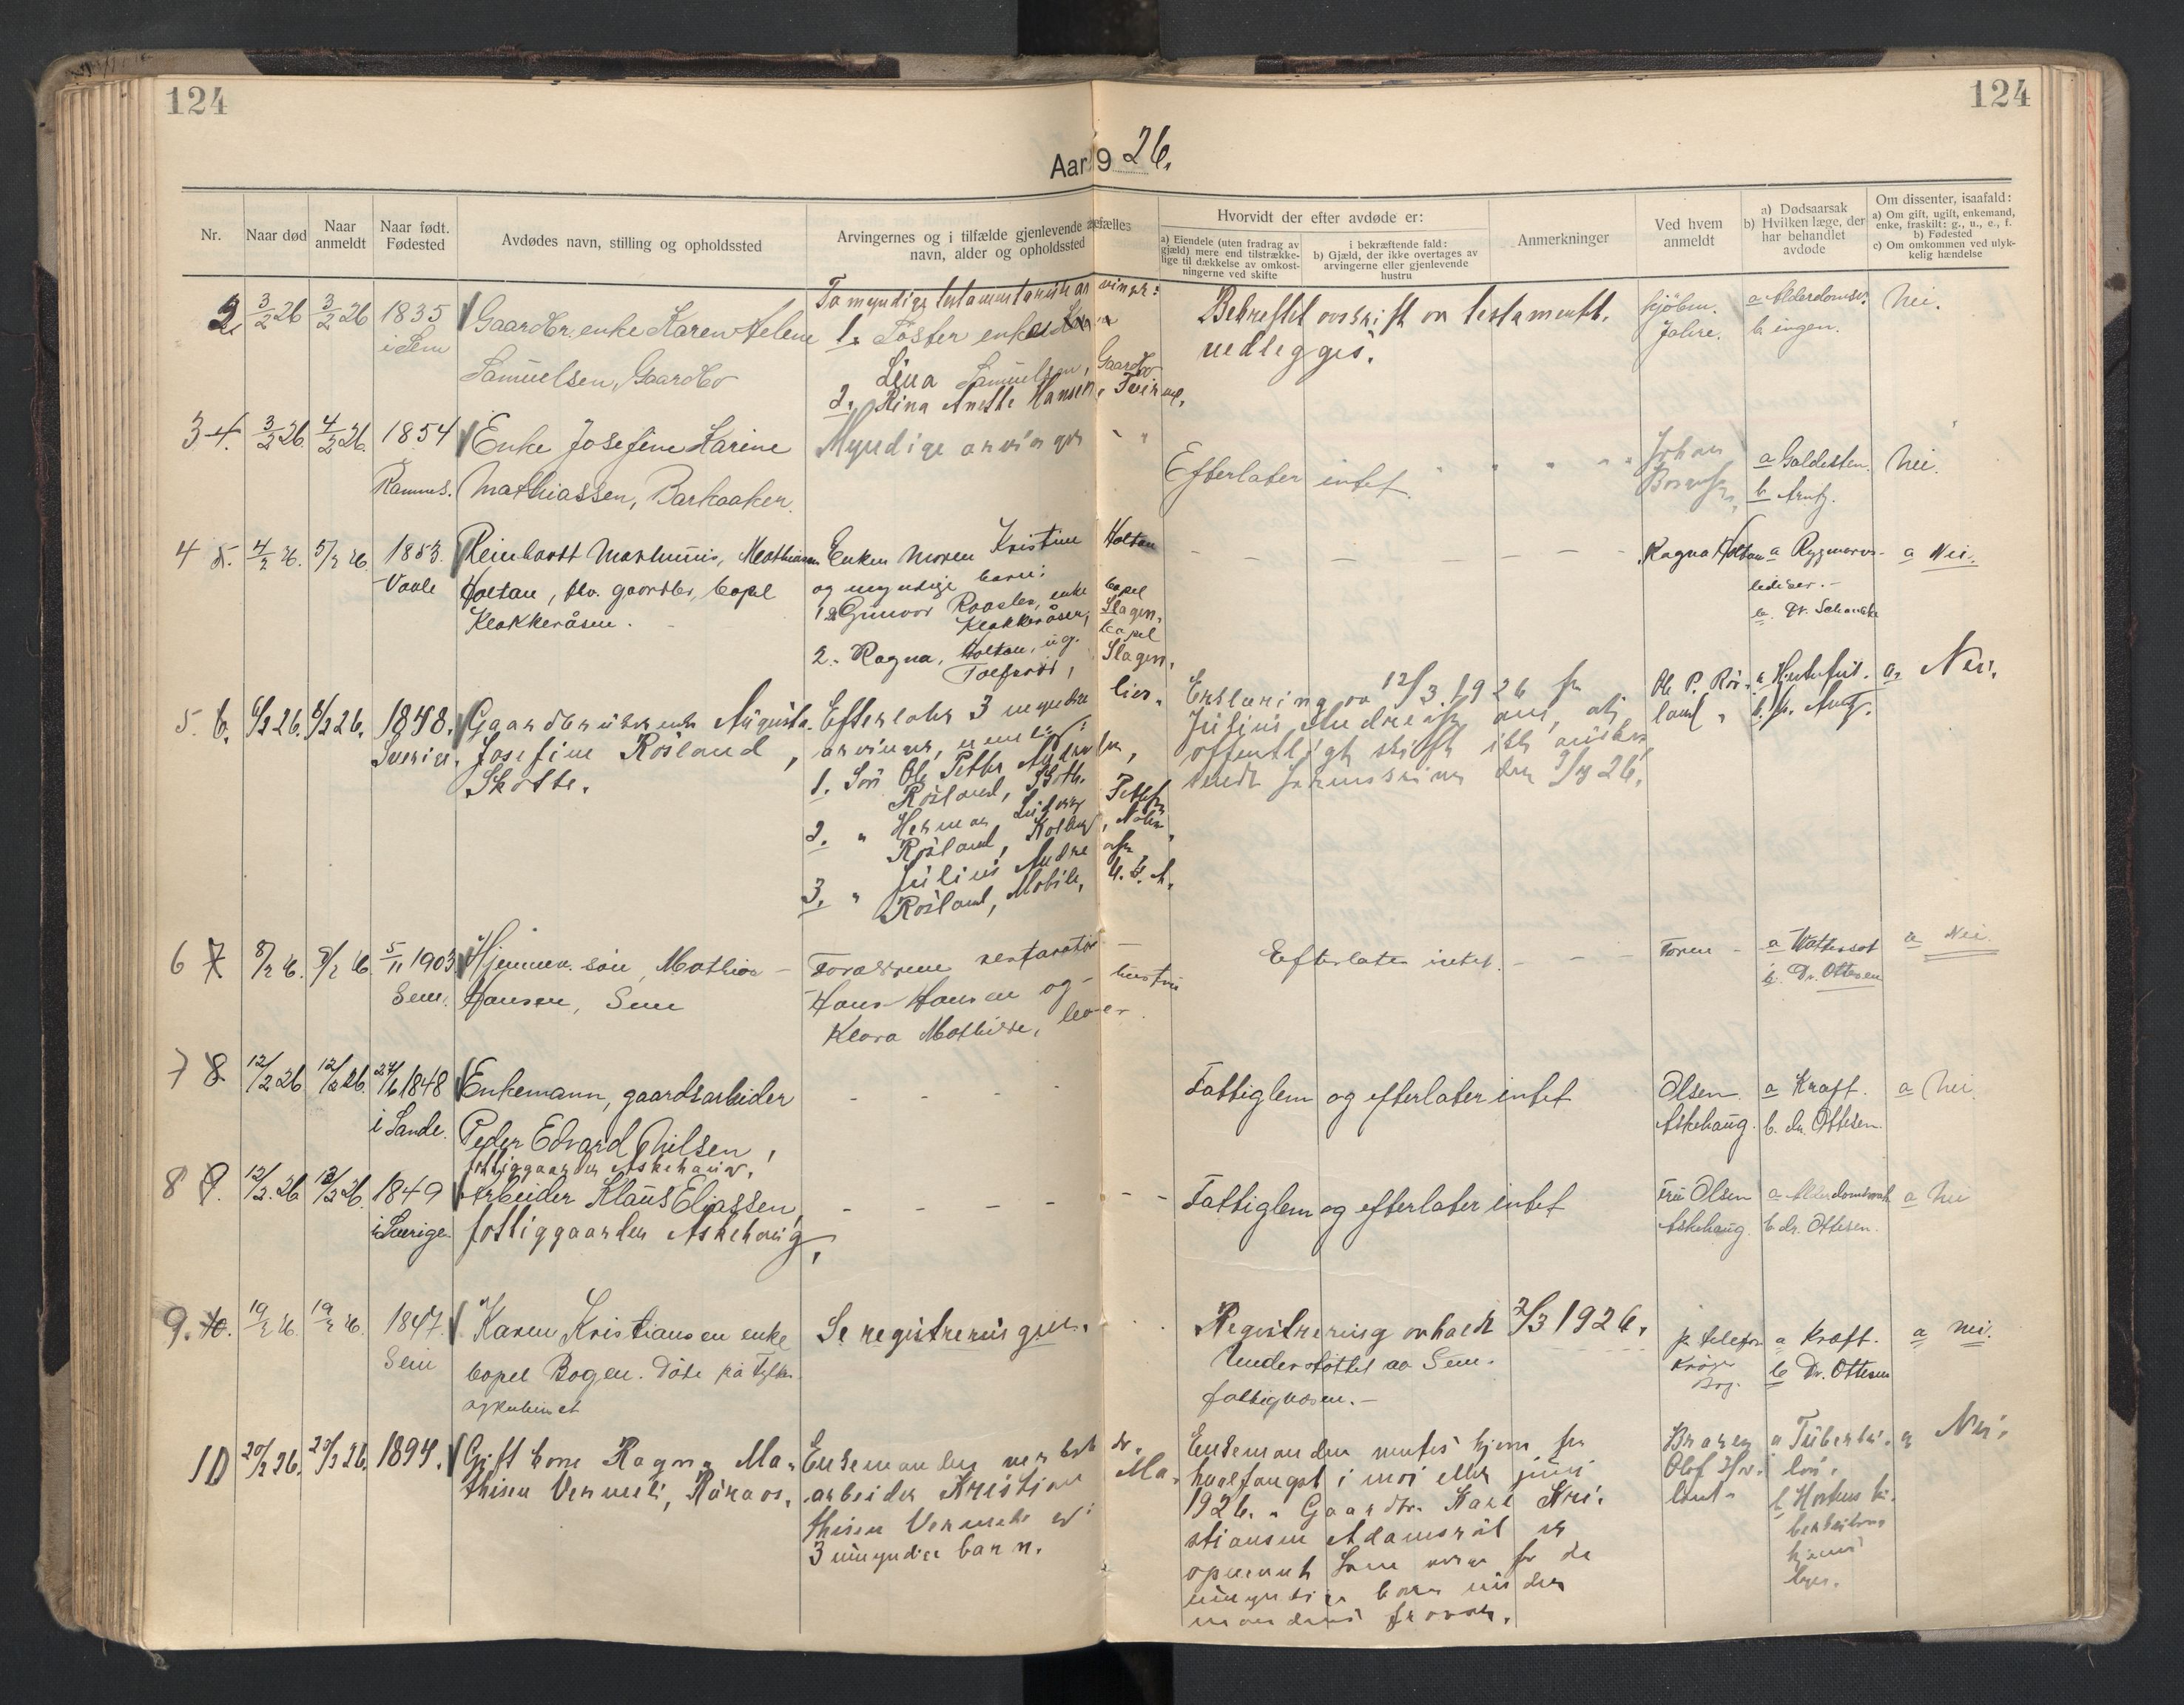 124
124
Aar 19 26.
Nr.
Naar død
Naar
anmeldt
Naar født.
Fødested
Avdødes navn, stilling og opholdssted
Arvingernes og i tilfælde gjenlevende
navn, alder og opholdssted
Hvorvidt der efter avdøde er:
a) Eiendele (uten fradrag av
gjæld) mere end tilstrække-
lige til dækkelse av omkost-
ningerne ved skifte
i bekræftende fald:
b) Gjæld, der ikke overtages av
arvingerne eller gjenlevende
hustru
Anmerkninger
Ved hvem
anmeldt
a) Dødsaarsak
b) Hvilken læge, der
har behandlet
avdøde
Om dissenter, isaafald:
a) Om gift, ugift, enkemand,
enke, fraskilt: g., u., e., f.
b) Fødested
c) Om omkommen ved ulyk-
kelig hændelse
2. 3/2 26 3/2 26 1835
i Sem
Gaardbr. enke Karen Helene
Samuelsen, Gaardbo
To myndige testamentariske arvinger:
1. Søster enke
Lina Samuelsen, Gaardbo
2. Rina Anethe Hansen,
Bekreftet avskrift av testament
vedlegges.
Jahre.
a Alderdomsv.
b ingen.
Nei.
3 4. 3/2 26. 4/2 26. 1854
Ramnes.
Enke Josefine Karine
Mathiassen, Barkaaker.
Myndige arvinger " "
Efterlater intet.
Johan
a Galdesten.
b Arntz.
Nei.
4 5. 4/2 26. 5/2 26. 1853.
Vaale
Reinhardt Marthinus, Mathiasen
Holtan, fhv. gaardbr, Capel
Klokkeråsen.
Enken Maren Kristine Holtan
og myndige barn:
1. Gunvor Raastad, enke Capel
Klokkeråsen, Slagen.
2. Ragna, Holtan, ug. Capel
Slagen.
Ragna Holtan
a Rygmarvs-
lidelse.-
b. Dr.
a Nei.
5. 6. 6/2 26. 8/2 26. 1848.
Sverige.
Gaardbrukerenke Augusta
Josefine Røsland,
Skotte.
Efterlater 3 myndige
arvinger, nemlig:
1. Søn Ole Petter Andreasen,
Røsland, Skotte.
2. " Herman Ludvig Pettersen
Røsland,
3. " Julius Andreasen
Røsland, Mobile, U.S.A.
Erklæring av 12/3 1926 fra
Julius Andreasen om, at
offentligt skifte ikke ønskes
Ole P. Røs-
land
a Hjertefeil.
b. dr. Arntz.
a. Nei.
6 7 8/2 26. 9/2 26. 5/11 1903
Sem.
Hjemmev. søn, Mathias
Hansen, Sem
Forældrene restaratør
Hans Hansen og hustru
Klara Mathilde, lever.
Efterlater intet.
Faren
a
b. Dr. Ottesen
a Nei.
7 8. 12/2 26 12/2 26. 24/6 1848
i Sande.
Enkemann, gaardsarbeider
Peder Edvard Nilsen,
fattiggaarden Askehaug.
Fattiglem og efterlater intet
Olsen.
Askehaug.
a Kraft.
b. dr. Ottesen.
a Nei.
8 9. 12/2. 26 12/2 26 1849
i Sverige
Arbeider Klaus Eliassen,
fattiggaarden Askehaug,
Fattiglem og efterlater intet
Fru Olsen
Askehaug.
a Alderdomssvak
b. dr. Ottesen.
a Nei
9. 10. 19/2 26. 19/2 26. 1847.
Sem
Karen Kristiansen enke
Capel Bogen. Døde på Fylkes-
sykehuset
Se registreringen.
Registrering avholdt 2/3 1926.
Understøttet av Sem.
fattigvæsen.-
pr telefon
a Kraft.
b Dr. Ottesen
a nei.
10 20/2 26. 20/2 26. 1894.
Gift kone Ragna Ma-
thisen Vermeli, Råraas.
Enkemanden
arbeider Kristian Ma-
thisen
3 umyndige barn.
Enkemanden ventes hjem fra
hvalfangst i mai eller juni
1926. Gaardbr. Karl Kri-
stiansen Adamsrød er
opnevnt som verge for de
umyndige barn under
mandens fravær.
Olaf
a Tuberku-
lose.
b Hortens tu-
berkulose
hjems
læge.
a Nei.